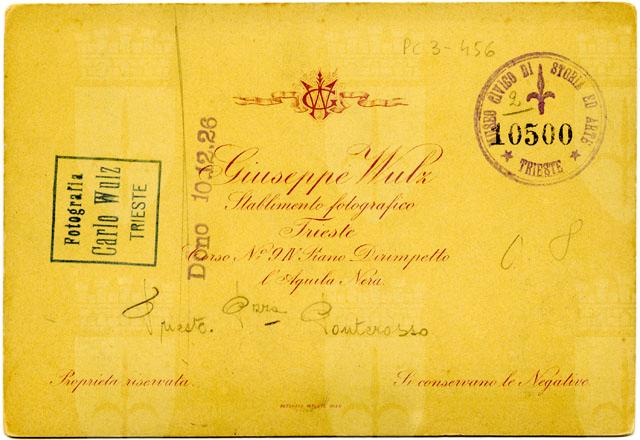 PC 3-456
MUSEO CIVICO DI STORIA ED ARTE
2
10500
TRIESTE
Giuseppe Wulz
Stablimento fotografico
Trieste
Corso No. 9 IV Piano Dirimpetto
l'Aquila Nera.
Fotografia
Carlo Wulz
TRIESTE
Dono 10.12.26
C. 8
Trieste. Pzza Ponterosso
Proprietà riservata.
Si conservano le Negative.